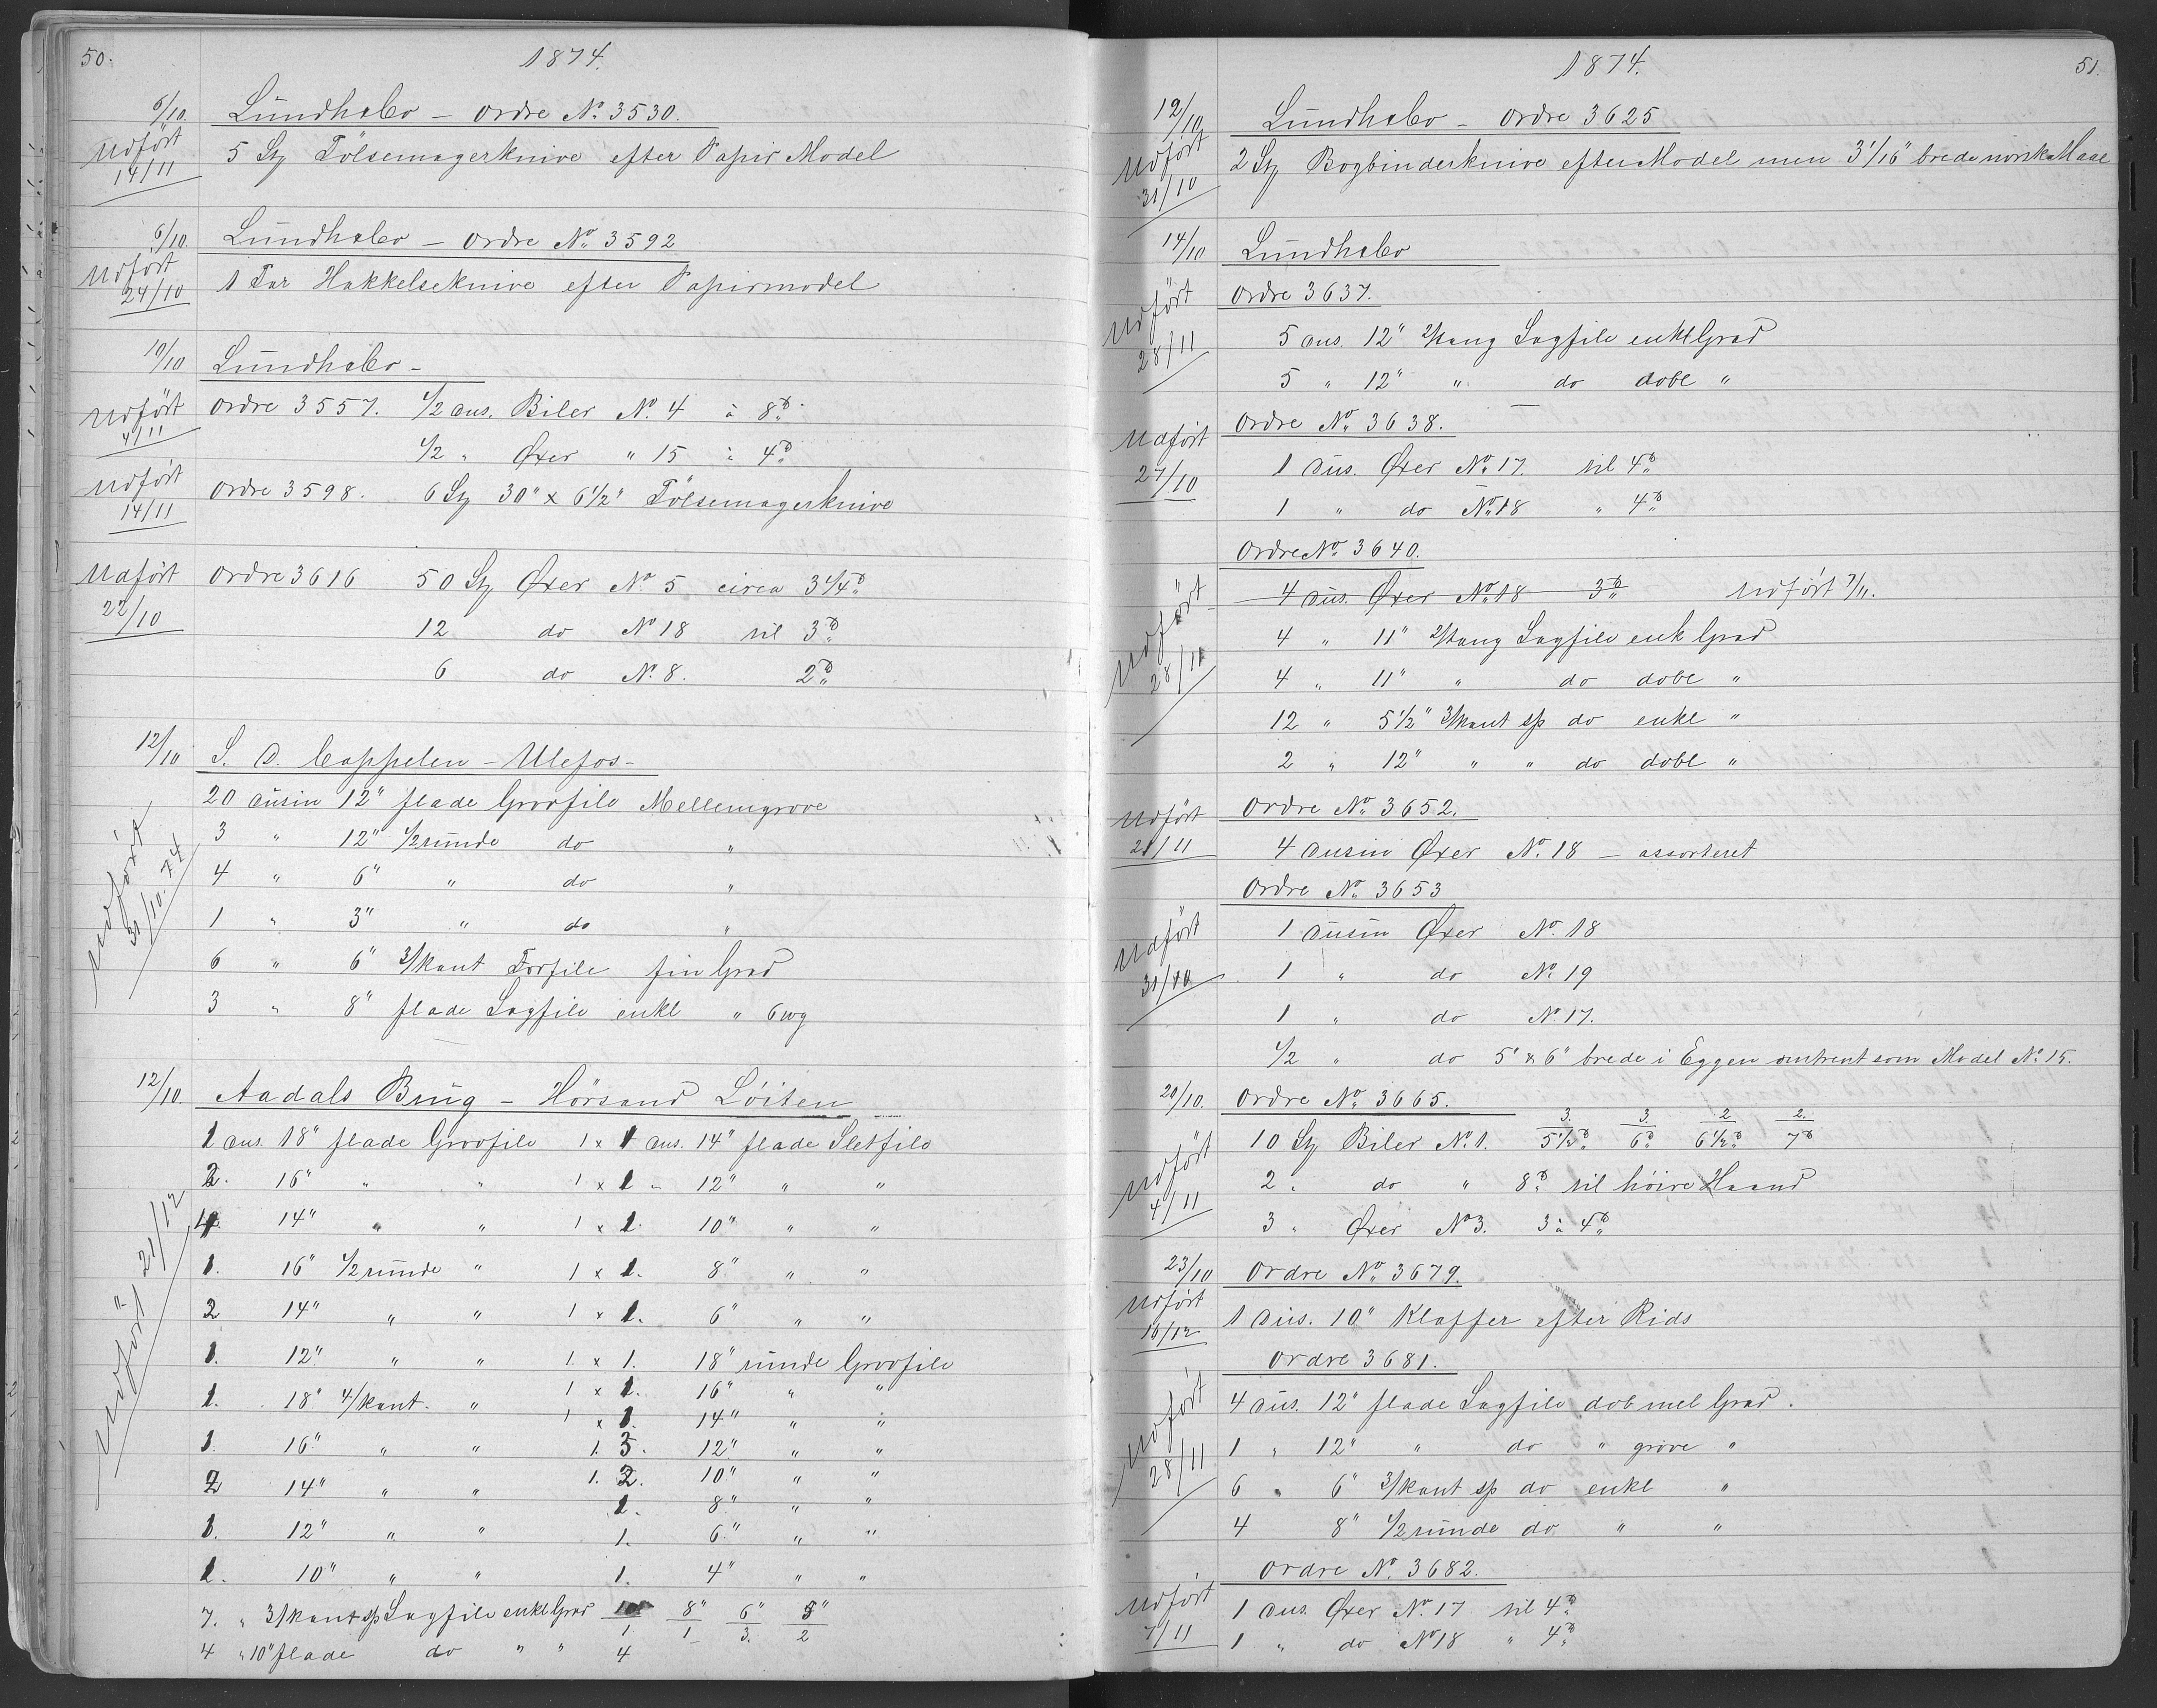 50.
1874.
6/10. Lundhebo - Ordre No 3530.
Udfört 14/11
5 St Pölsemagerknive efter Papir Model
6/10. Lundhebo - Ordre No 3592
Udfört 24/10
1 Par Hakkelseknive efter Papirmodel
10/10 Lundhebo -
Udfört 4/11
Ordre 3557. 1/2 Dus. Biler No. 4 à 8 ℔.
1/2 " Øxer " 15 à 4 ℔
Udfört 14/11
Ordre 3598. 6 St 30" x 6 1/2" Pölsemagerknive
Udfört 22/10
Ordre 3616 50 St Øxer No 5 circa 3 1/4 ℔
12 do No 18 til 3 ℔
6 do No. 8. 2 ℔
12/10 S. D. Cappelen - Ulefos -
Udfört 31/10. 74
20 Dusin 12" flade Grovfile Mellemgrove
3 " 12" 1/2 runde do "
4 " 6" " do "
1 " 3" " do "
6 " 6" 3/kant Forfile fin Grad
3 " 8" flade Sagfile enkl "
12/10. Aadals Brug - Hörsand Löiten
Udfört 21/12
1 Dus. 18" flade Grovfile 1 x 1 Dus. 14" flade Sletfile
2. 16" " " 1 x 1 " 12" " "
14" " " 1 x 1. 10" " "
1. 16" 1/2 runde " 1 x 1. 8" " "
2 14" " " 1 x 1. 6" " "
1. 12" " " 1. x 1. 18" runde Grovfile
1. 18" 4/kant. " 1 x 1. 16" " "
1 x 1. 14" " "
1. 16" " " 1. 3. 12" " "
2 14" " " 1. 2. 10" " "
1. 8" " "
1. 12" " " 1. 6" " "
1. 10" " " 1. 4" " "
7. " 3/kant sp Sagfile enkl Grad 10"/1 8"/1 6"/3. 5"/2
4 " 10" flade do " " 4
1874.
51.
12/10 Lundhebo - Ordre 3625
Udfört 31/10
2 St Bogbinderknive efter Model men 3 1/16" brede norsk Maal
14/10 Lundhebo
Ordre 3637.
Udfört 28/11
5 Dus. 12" 2/kang Sagfile enkl Grad
5 " 12" " do dobl "
Ordre No 3638.
Udfört 27/10
1 Dus. Øxer No 17. til 4 ℔
1 " do No 18 " 4 ℔
Ordre No 3640.
4 Dus. Øxer No 18 3 ℔ Udfört 7/11.
Udfört 28/11
4 " 11" 2/kang Sagfile enk Grad
4 " 11" " do dobl "
12 " 5 1/2" 3/kant sp do enkl "
2 " 12" " " do dobl "
Ordre No 3652.
Udfört 21/11
4 Dusin Øxer No. 18 - assorteret
Ordre No 3653
Udfört 31/10
1 Dusin Øxer No. 18
1 " do No 19
1 " do No 17.
1/2 " do 5" & 6" brede i Eggen omtrent som Model No 15.
20/10. Ordre No 3665.
Udfört 4/11
10 St Biler No. 1. 3./5 1/2 ℔ 3./6 ℔ 2/6 1/2 ℔ 2./7 ℔
2 " do " 8 ℔ til höire Haand
3 " Øxer No 3. 3 à 4 ℔
23/10 Ordre No 3679.
Udfört 16/12
1 Dus. 10" Klapper efter Rids
Ordre 3681.
Udfört 28/11
4 Dus. 12" flade Sagfile dob mel Grad.
1 " 12" " do " grove "
6 " 6" 3/kant sp do enkl "
4 8" 1/2 runde do " "
Ordre No. 3682.
Udfört 7/11
1 Dus. Øxer No. 17 til 4 ℔
1 " do No 18 " 4 ℔